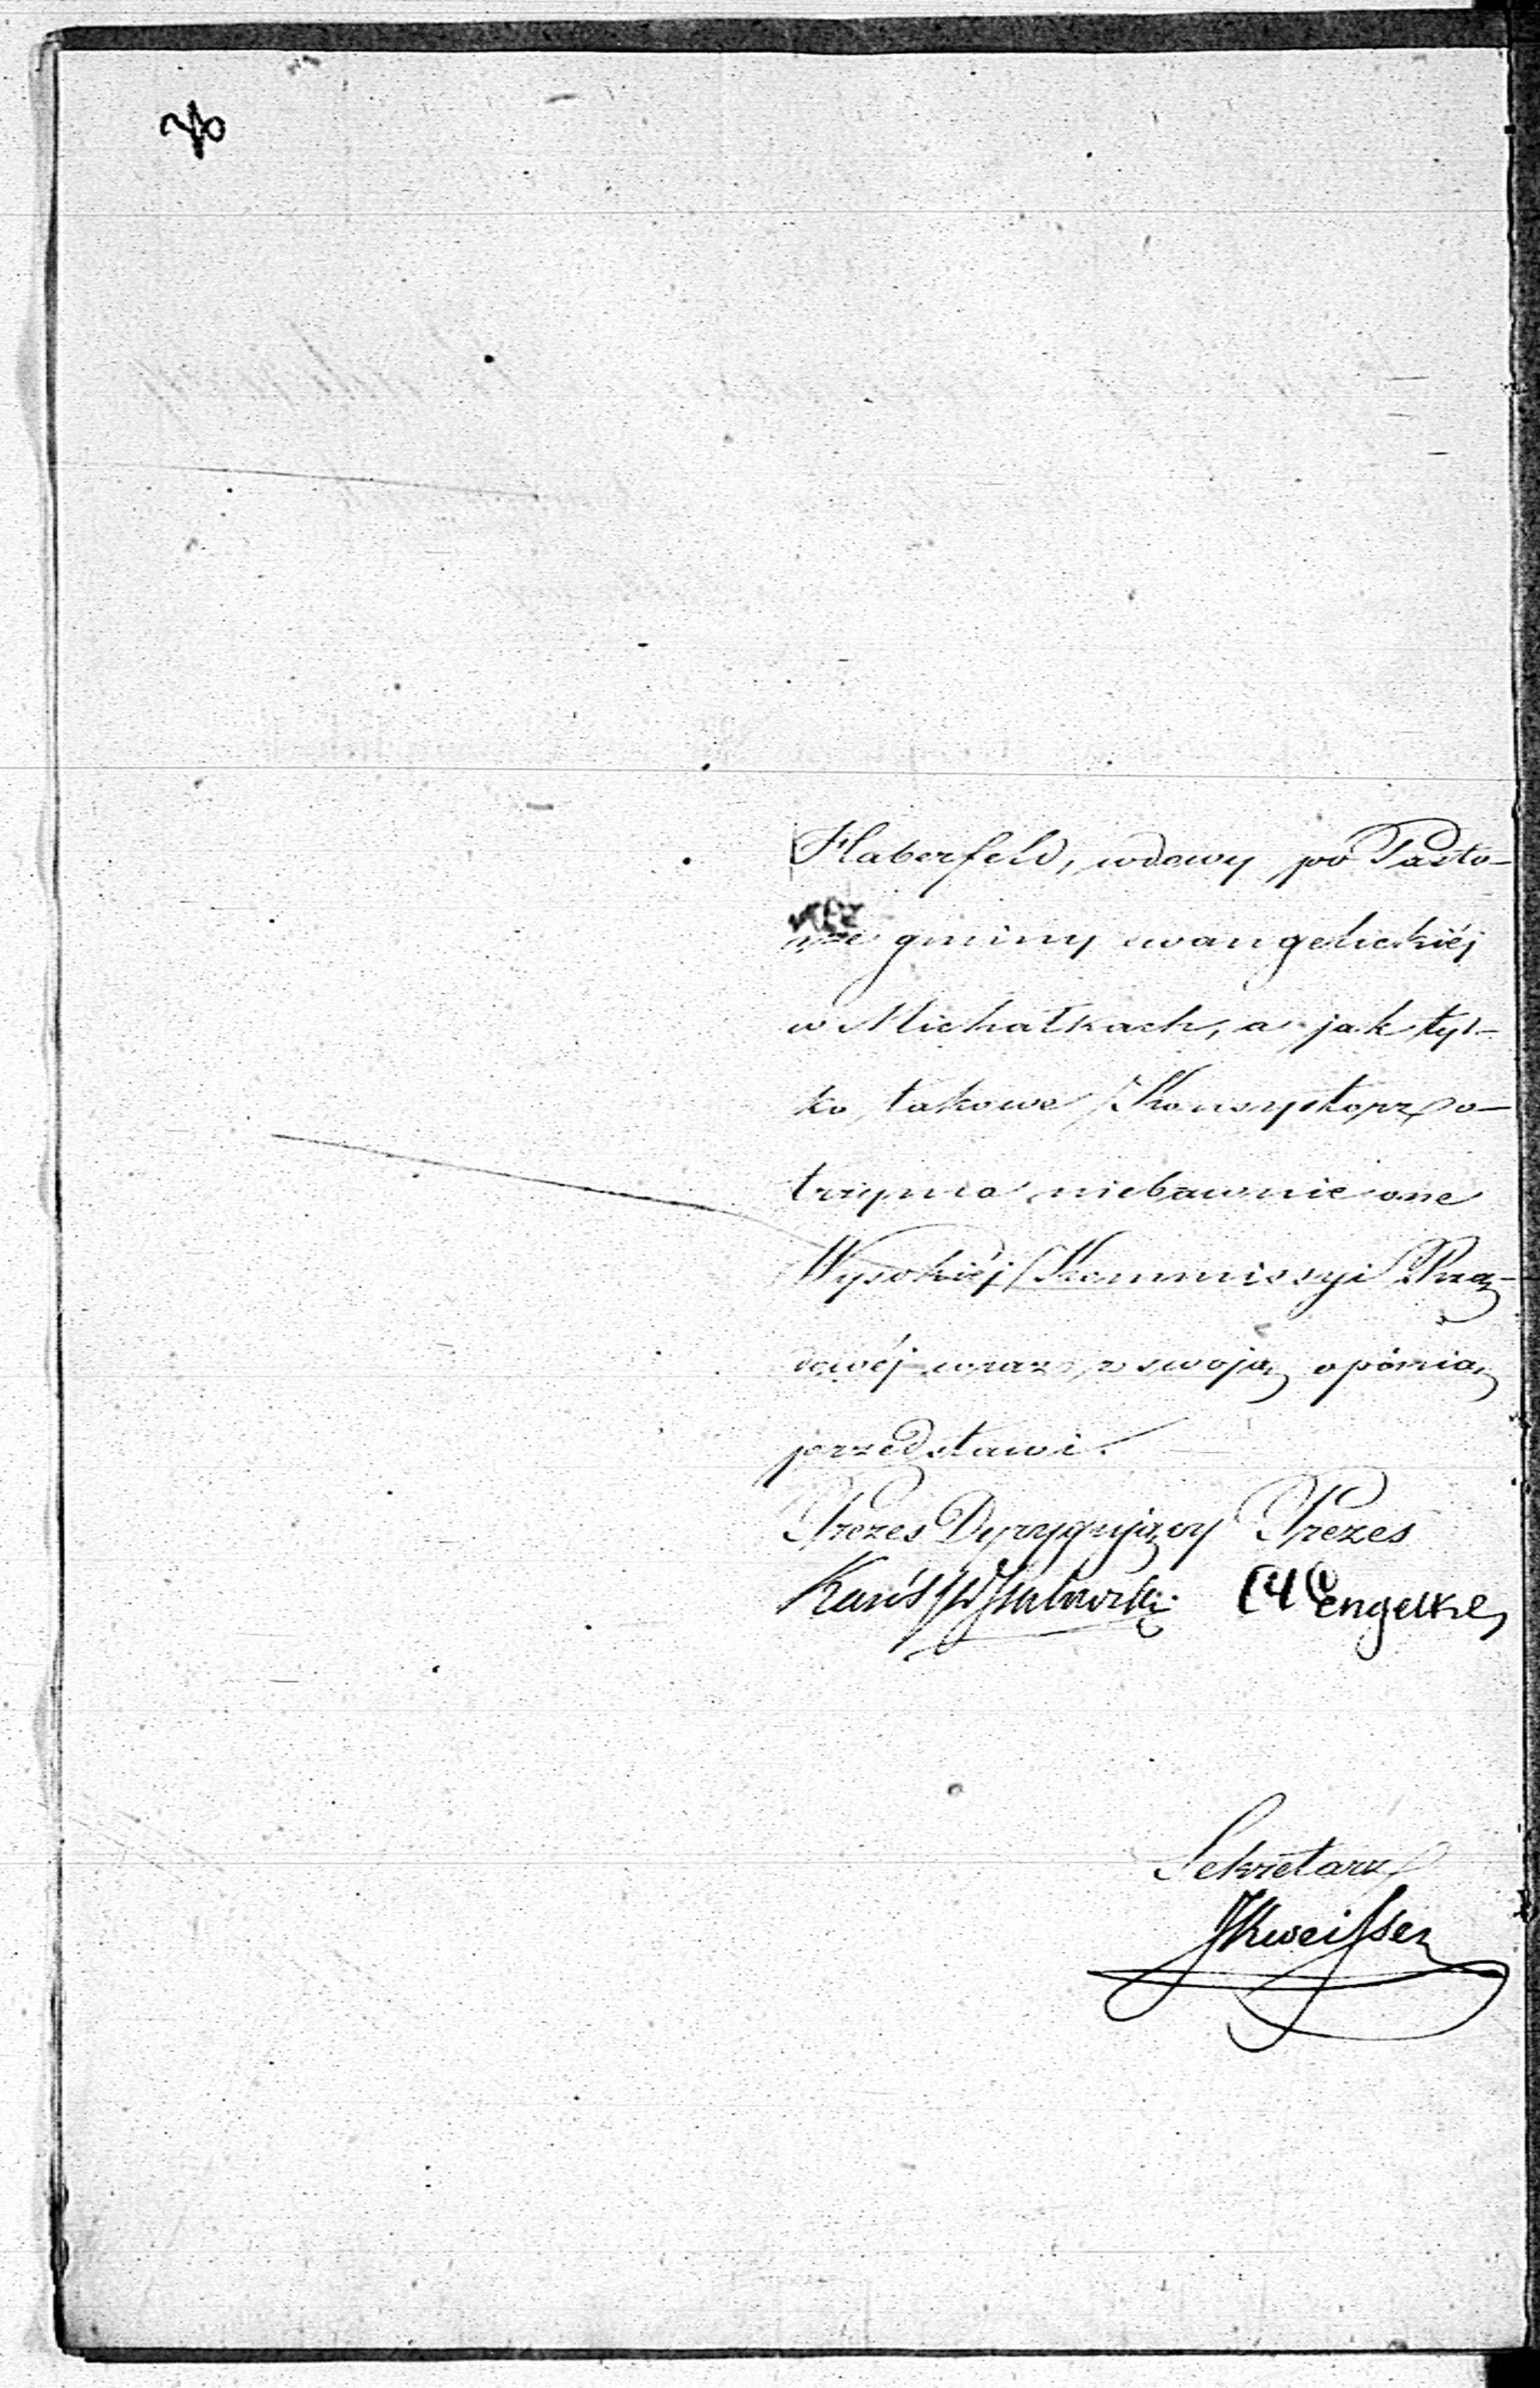 Haberfeld, wdowy po Pasto-
rze gminy ewangelickiéj
w Michałkach, a jak tyl-
ko takowe Konsystorz o-
trzyma niebawnie one
Wysokiéj Kommissyi Rzą-
dowéj wraz z swoją opinią
przedstawi.
Prezes Dyrygujący Prezes
Engelke
Sekretarz